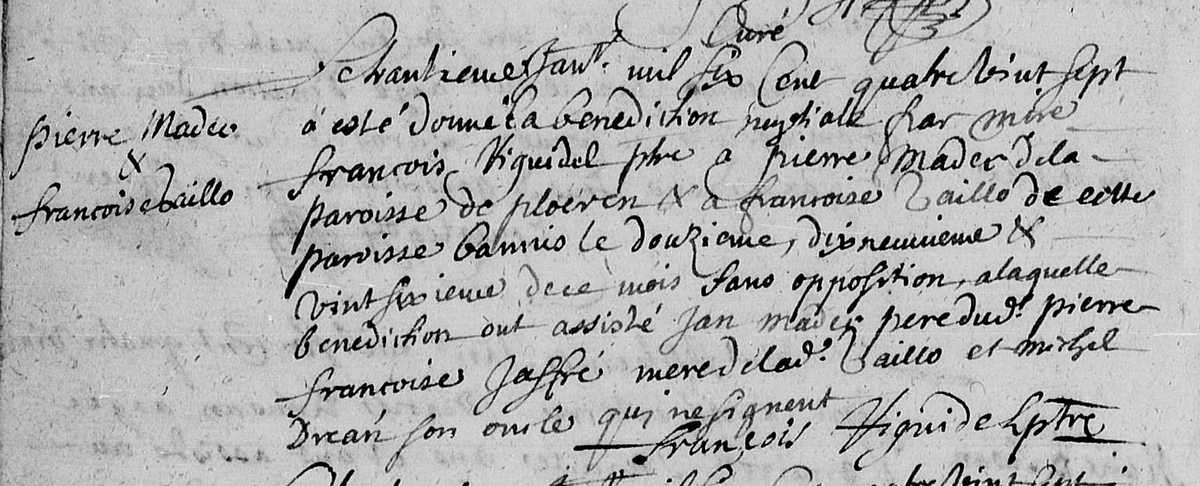 Curé
trantieme Janv. mil six Cent quatre vint sept
à esté donné la benediction nuptiale par mire
francois Viguidel ptre a pierre Madec dela
paroisse de ploeren & a francoise Taillo de cette
paroisse bannis le douzieme, dixneuvieme &
vint sixieme de ce mois sans opposition, alaquelle
benediction ont assisté Jan Madec pere dud. pierre
francoise Jaffré mere delad. Taillo et michel
Drean son oncle qui ne signent
francois Viguidel ptre
pierre Madec
&
francoise Taillo